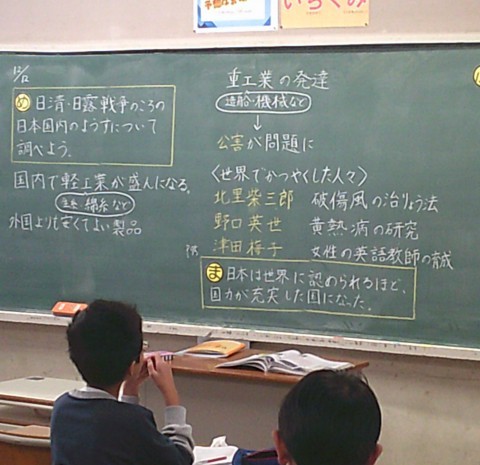 いちくみ
12/12
め 日清・日露戦争のころの
日本国内のようすについて
調べよう。
国内で軽工業が盛んになる。
綿糸など
外国よりも安くてよい製品
重工業の発達
造船・機械など
↓
公害が問題に
〈世界でかつやくした人々〉
北里柴三郎 破傷風の治りょう法
野口英世 黄熱病の研究
津田梅子 女性の英語教師の育成
ま 日本は世界に認められるほど、
国力が充実した国になった。